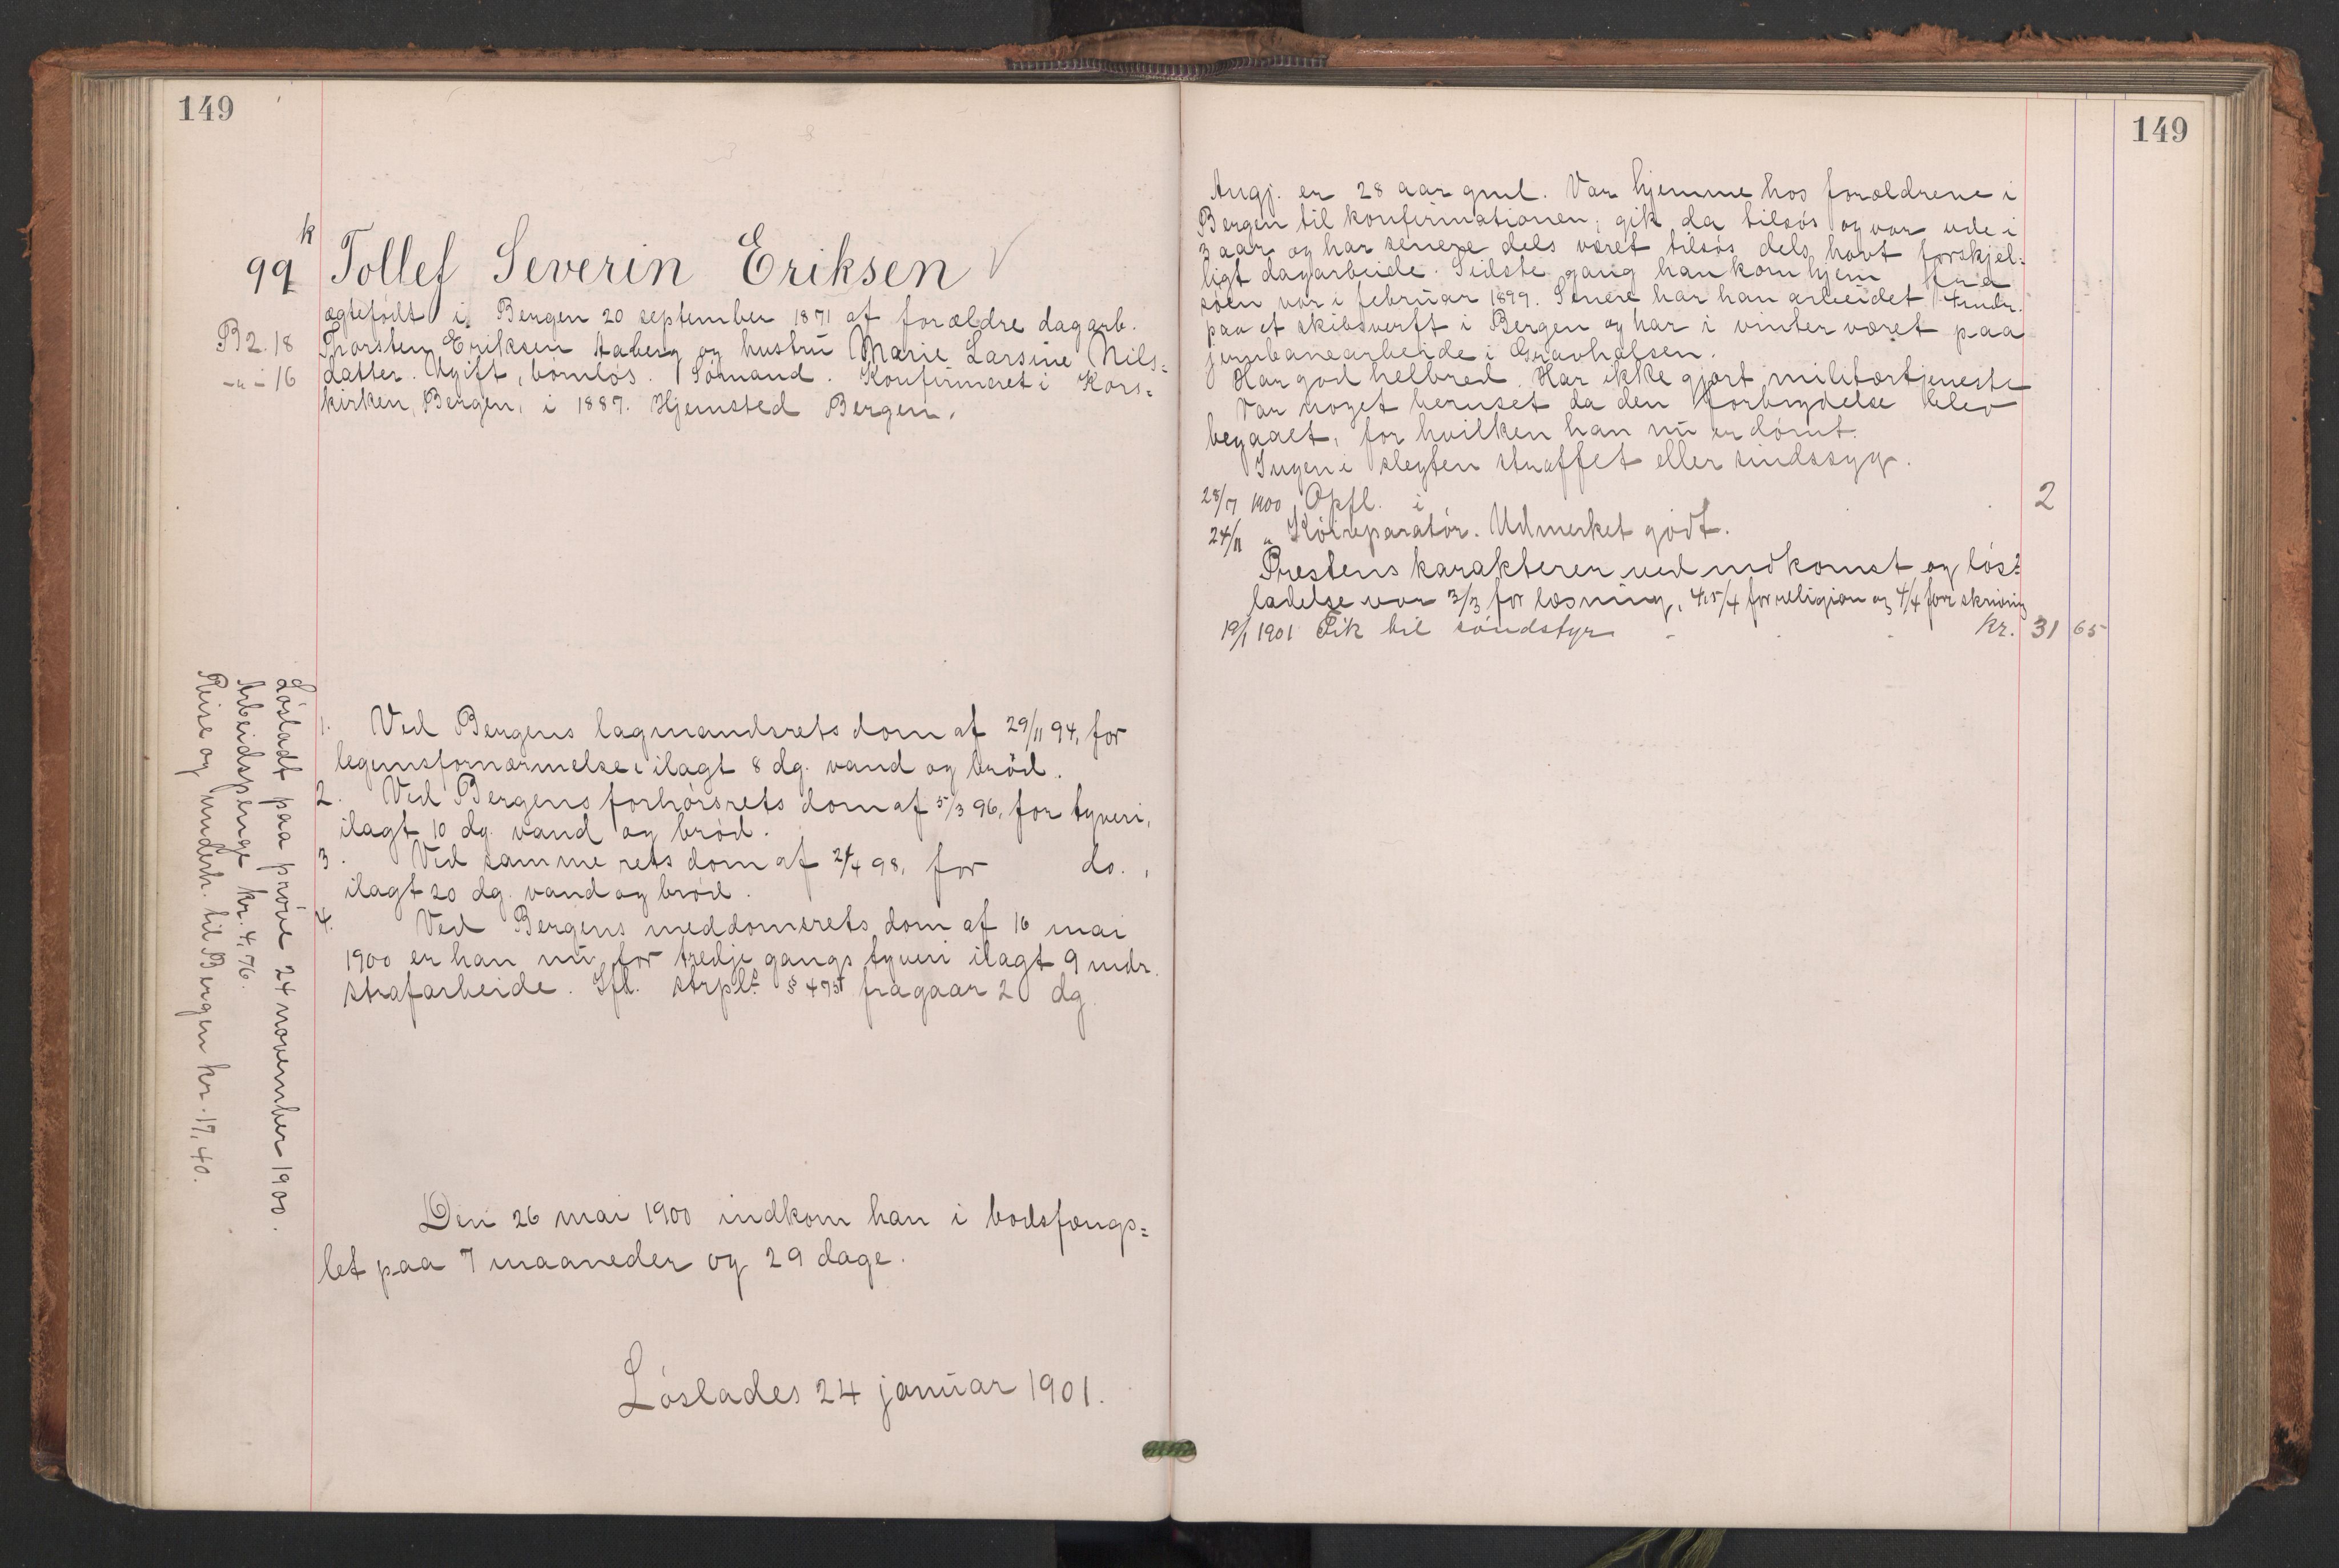 149
k
99 Tollef Severin Eriksen
ægtefødt i Bergen 20 september 1871 af forældre dagarb.
B2.18 Thorsten Eriksen Aaberg og hustru Marie Larsine Nils=
-„- 16 datter. Ugift, barnløs. Sømand. Konfirmeret i Kors=
kirken, Bergen, i 1887. Hjemsted Bergen.
1. Ved Bergens lagmandsrets dom af 29/11 94, for
legemsfornærmelse ilagt 8 dg. vand og brød.
2. Ved Bergens forhørsrets dom af 5/3 96, for tyveri,
ilagt 10 dg. vand og brød.
3. Ved samme rets dom af 2/4 98, for do.,
ilagt 20 dg. vand og brød.
4. Ved Bergens meddomsrets dom af 16 mai
1900 er han nu for tredje gangs tyveri ilagt 9 mdr.
strafarbeide. Ifl. strpl. § 475 fragaar 2 dg.
Løsladt paa prøve 24 november 1900.
Arbeidspenge kr. 4,76.
Reise og underh. til Bergen kr. 17,40.
Den 26 mai 1900 indkom han i bodsfængs=
let paa 7 maaneder og 29 dage.
Løslades 24 januar 1901.
149
Angj. er 28 aar gml. Var hjemme hos forældrene i
Bergen til konfirmationen; gik da tilsøs og var ude i
3 aar og har senere dels været tilsøs dels havt forskjel=
ligt dagarbeide. Sidste gang han kom hjem fra
søen var i februar 1899. Senere har han arbeidet 4 mdr.
paa et skibsverft i Bergen og har i vinter været paa
jernbanearbeide i Gravhalsen.
Har god helbred. Har ikke gjort militærtjeneste
Var noget beruset da den forbrydelse blev
begaaet, for hvilken han nu er dømt.
Ingen i slegten straffet eller sindssyg.
28/7 1900 Opfl. i 2
24/11 „ Køireparatør. Udmerket godt.
Prestens karakterer ved indkomst og løs=
ladelse var 3/3 for læsning, 4,5/4 for religion og 4/4 for skrivning
19/1 1901 Fik til søudstyr kr. 31 65